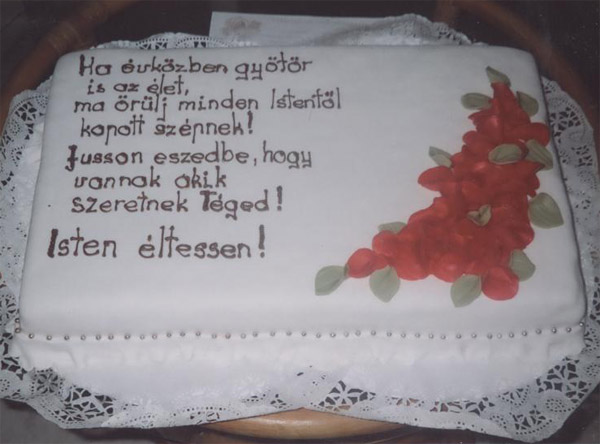 Ha évközben gyötör
is az élet,
ma örülj minden Istentől
kopott szépnek!
Jusson eszedbe, hogy
vannak akik
szeretnek Téged!
Isten éltessen!